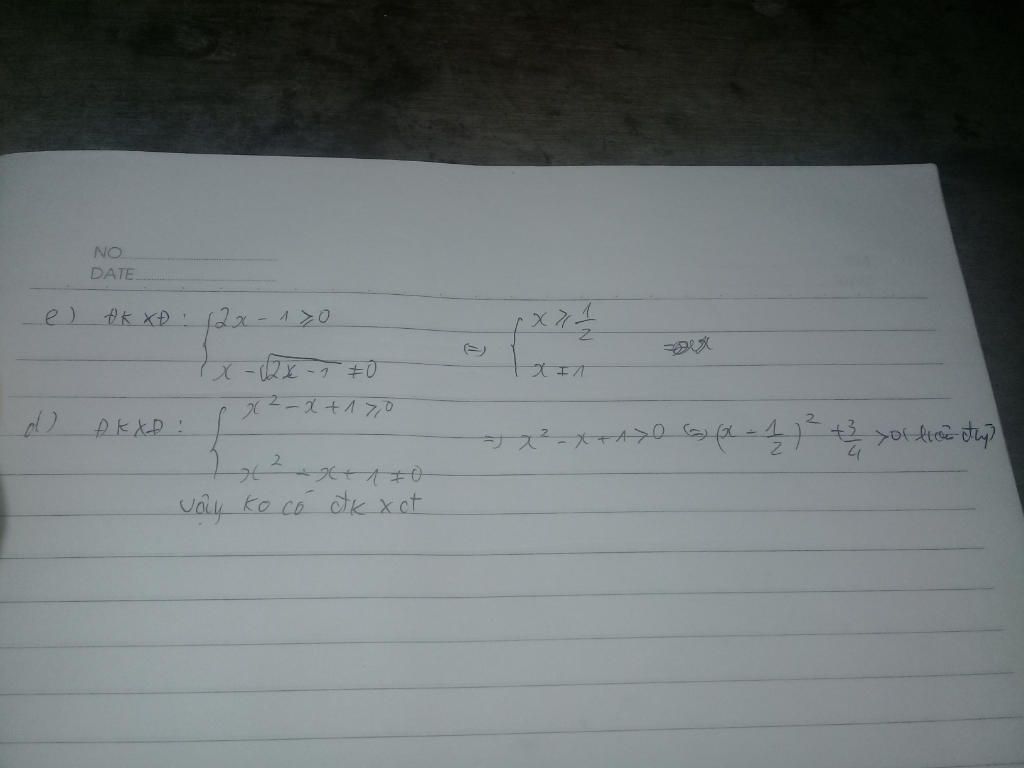 NO
DATE
e) ĐKXĐ: { 2x - 1 ≥ 0
x - √2x-1 ≠ 0 (=) { x ≥ 1/2
x ≠ 1
d) ĐKXĐ: { x² - x + 1 ≥ 0
x² - x + 1 ≠ 0 =) x² - x + 1 > 0 (=) (x - 1/2)² + 3/4 > 0 (luôn đúng)
vậy ko có đk xđ